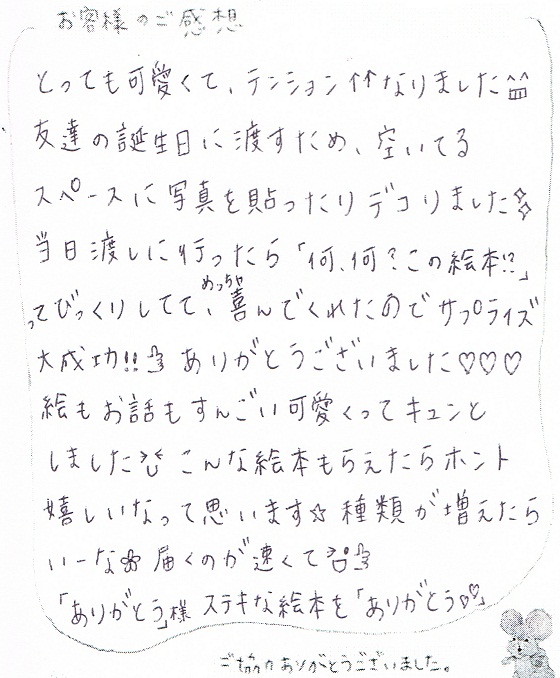 お客様のご感想
とっても可愛くて、テンション↑↑なりました
友達の誕生日に渡すため、空いてる
スペースに写真を貼ったりデコりました
当日渡しに行ったら「何、何?この絵本!?」
ってびっくりしてて、めっちゃ喜んでくれたのでサプライズ
大成功!! ありがとうございました♡♡♡
絵もお話もすんごい可愛くってキュンと
しました こんな絵本もらえたらホント
嬉しいなって思います☆ 種類が増えたら
いーな 届くのが速くて
「ありがとう」様 ステキな絵本を「ありがとう♡」
ご協力ありがとうございました。